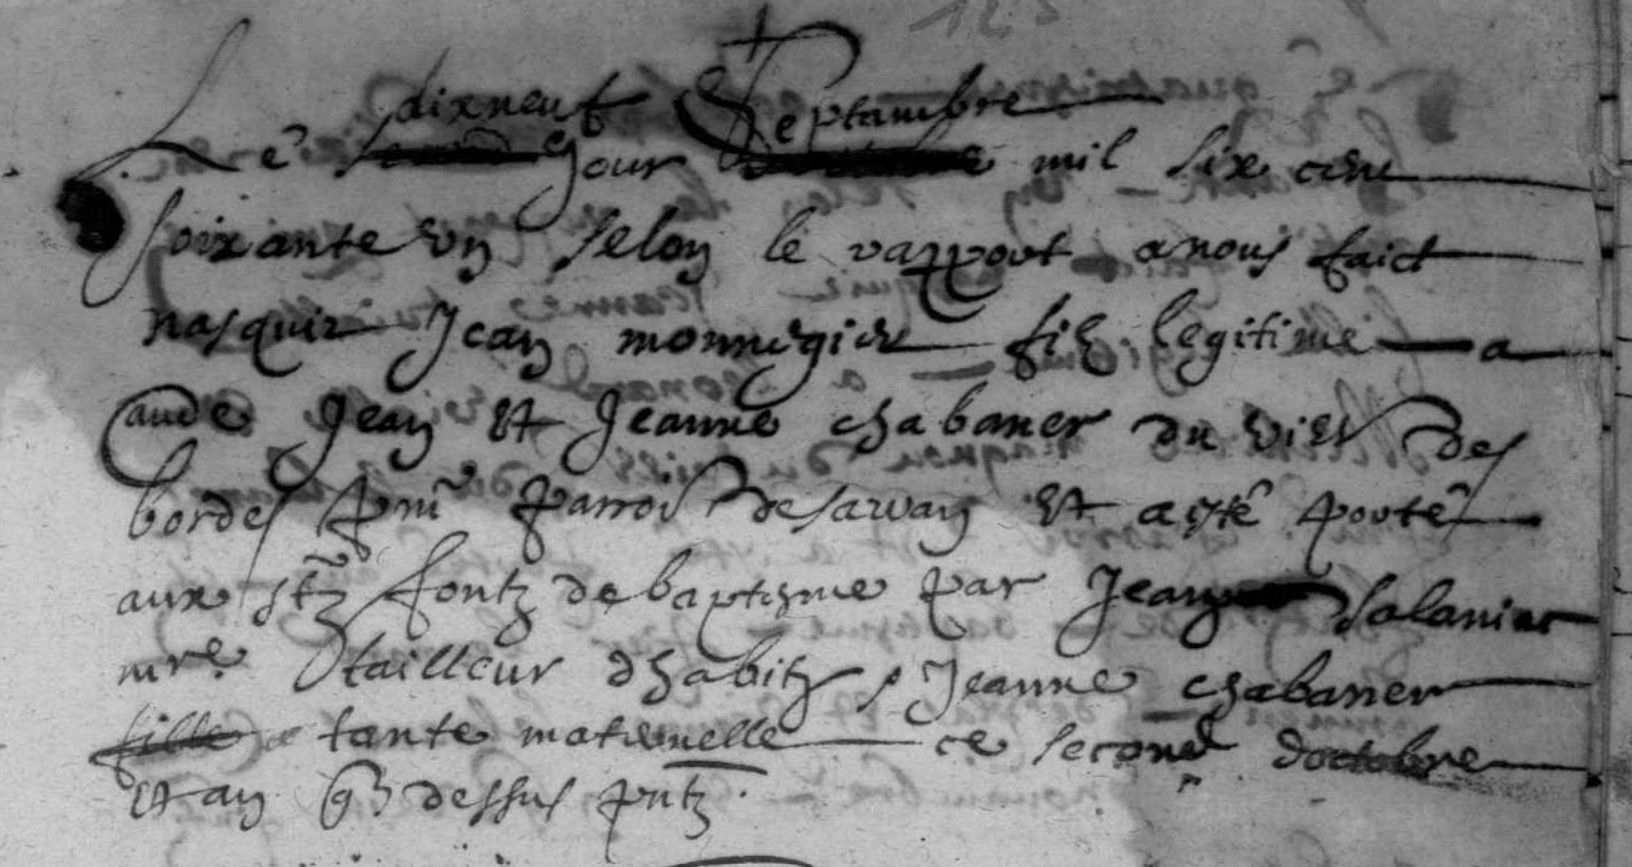 dixneuf Septambre
Le jour mil six cens
soixante un selon le rapport a nous faict
nasquit Jean monnegier filz legitime a
aude Jean Et Jeanne chabaner du vilt des
bordes pnt parroi desarvan Et a esté porté
aux stz fontz de baptesme par Jean Salanier
mre tailleur dhabitz, Jeanne chabaner
fille tante maternelle ce second doctobre
Et an q dessus pntz.